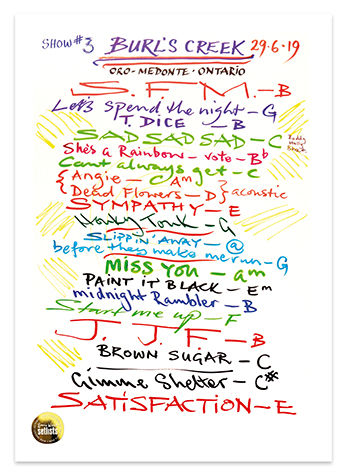 SHOW #3 BURL'S CREEK 29·6·19
ORO-MEDONTE·ONTARIO
S.F.M.-B
Let's spend the night-G
T. DICE - B
SAD SAD SAD - C
She's a Rainbow - vote - Bb
Can't always get - C
{Angie - Am
{Dead Flowers - D }acoustic
SYMPATHY - E
Honky Tonk - G
SLIPPIN' AWAY - @
before they make me run - G
MISS YOU - am
PAINT IT BLACK - Em
midnight Rambler - B
Start me up - F
J. J. F - B
BROWN SUGAR - C
Gimme Shelter - C#
SATISFACTION - E
setlists